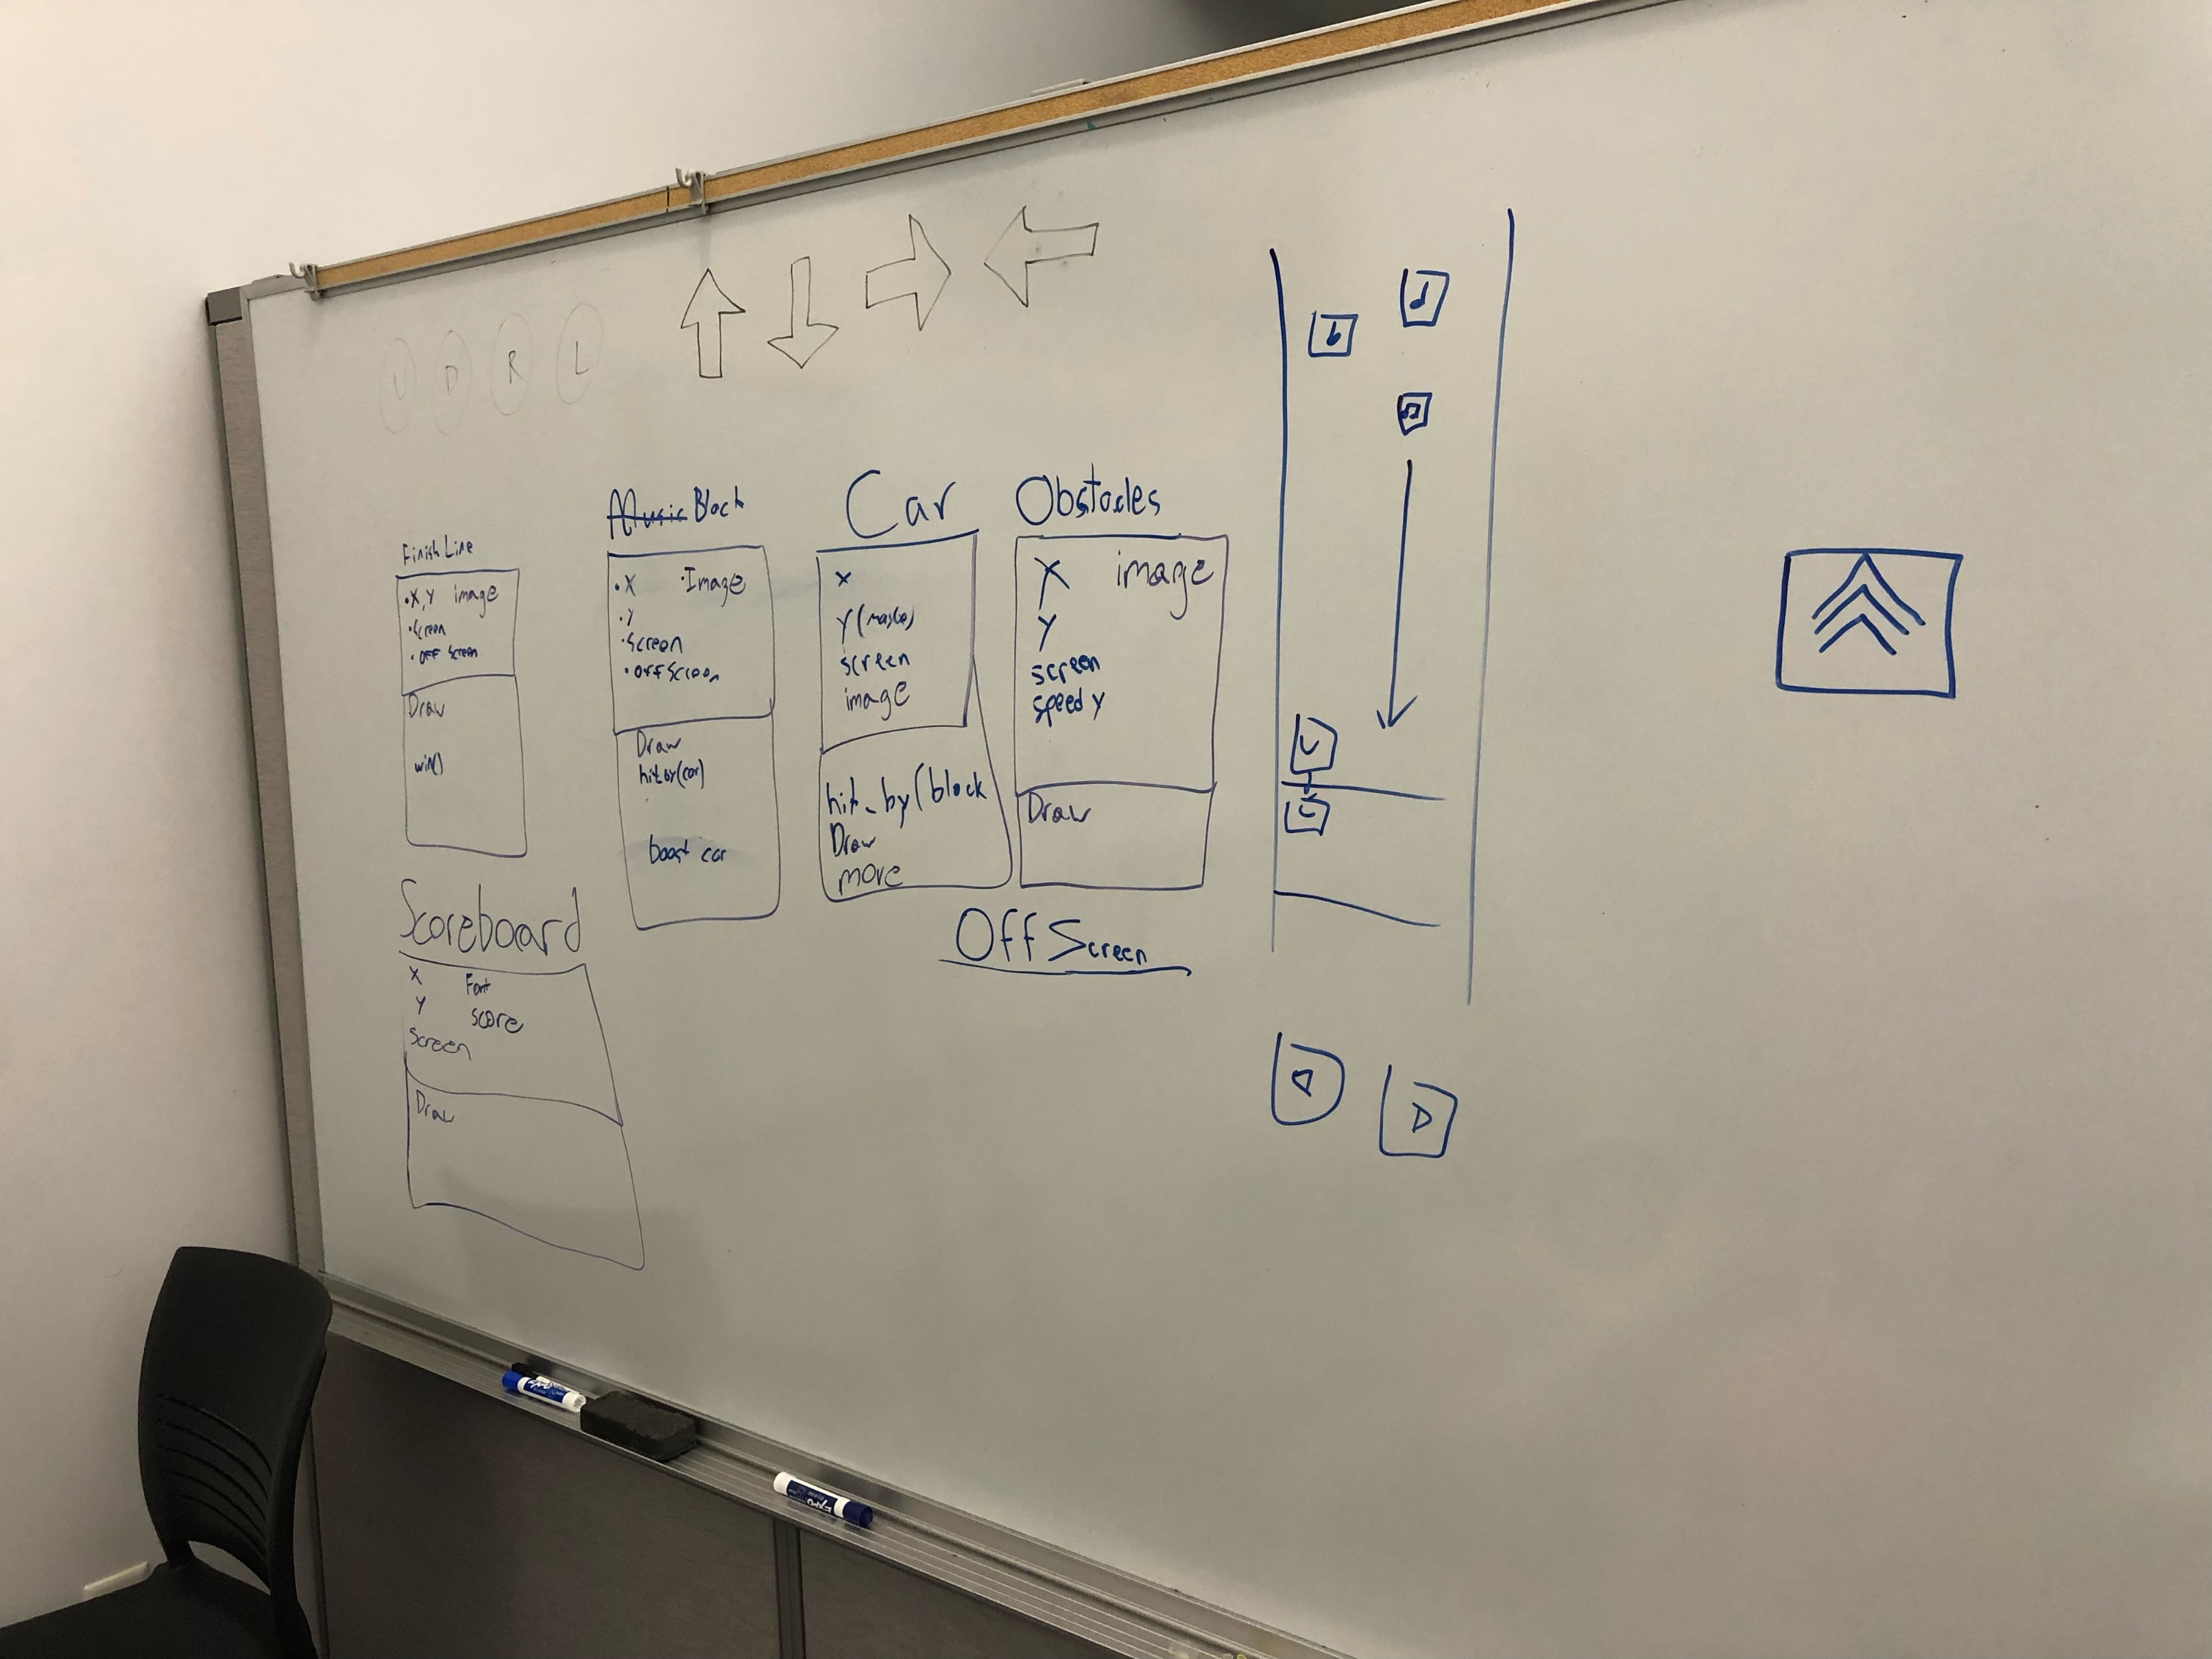 D
R
L
Finish Line
•X, Y image
•Screen
•Off Screen
Draw
win()
Music Block
•X •Image
•Y
•Screen
•Off Screen
Draw
hit by(car)
boost car
Car
X
Y (maybe)
screen
image
hit_by(block
Draw
move
Obstacles
X image
Y
screen
speed y
Draw
Off Screen
Scoreboard
X Font
Y score
Screen
Draw